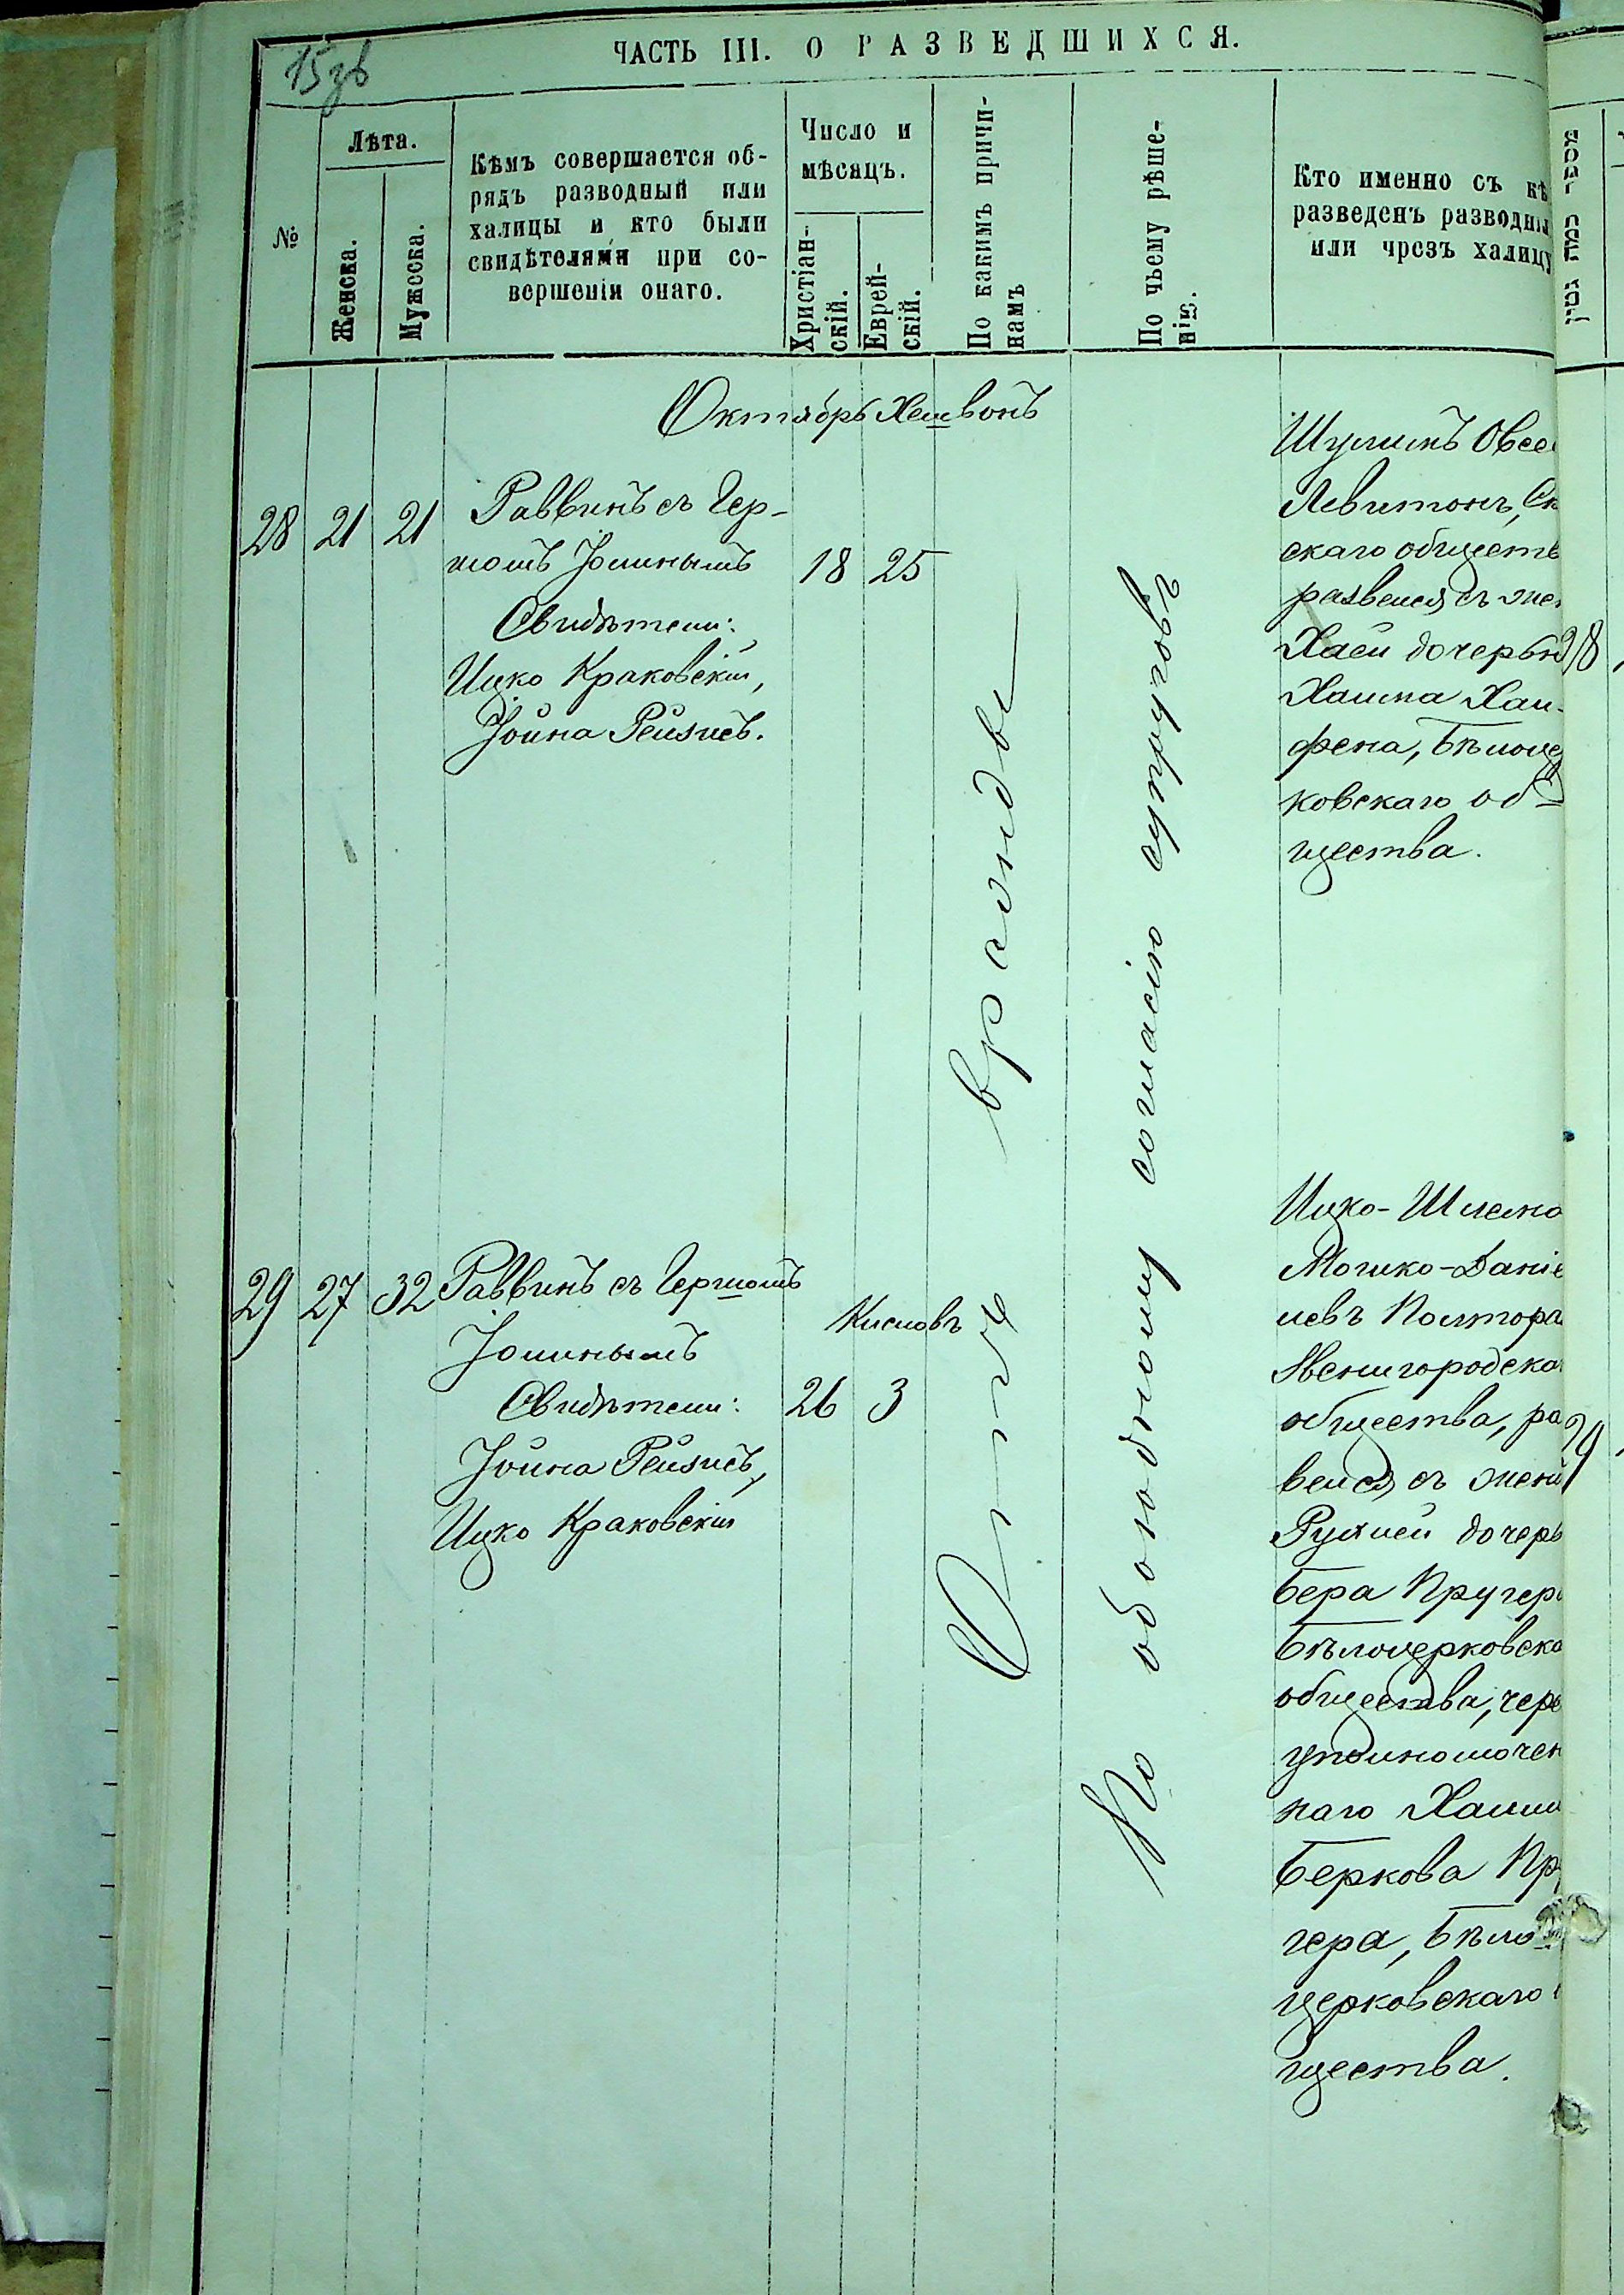 15зв
ЧАСТЬ III. О РАЗВЕДШИХСЯ.
№
Лѣта.
Женска.
Мужеска.
Кѣмъ совершается об-
рядъ разводный или
халицы и кто были
свидѣтелями при со-
вершеніи онаго.
Число и
мѣсяцъ.
Христіан-
скій.
Еврей-
скій.
По какимъ причи-
намъ
По чьему рѣше-
нію.
Кто именно съ кѣ
разведенъ разводны
или чрезъ халицу
מספר כמה גטין
Октябрь Хешвонъ
28 21 21
Раввинъ съ Гер-
шомъ Іоинымъ
Свидѣтели:
Ицко Краковскій,
Іойна Рейзисъ.
18 25
Отъ вражды
По обоюдному согласію супруговъ
Шулимъ Овсе
Левитонъ, Ск
скаго обществ
развелся съ же
Хаей дочерью
Хаима Хан-
фена, Бѣлоце
ковскаго об-
щества.
28
29 27 32
Раввинъ съ Гершомъ
Іоинымъ
Свидѣтели:
Іойна Рейзисъ,
Ицко Краковскій
Кислевъ
26 3
Ицко-Шлема
Мошко-Даніе
левъ Полтора
Звенигородска
общества, ра
велся съ жен
Рухлей дочерь
Бера Пругер
Бѣлоцерковска
общества, чере
уполномочен
наго Хаима
Беркова Пр
гера, Бѣло-
церковскаго
щества.
29